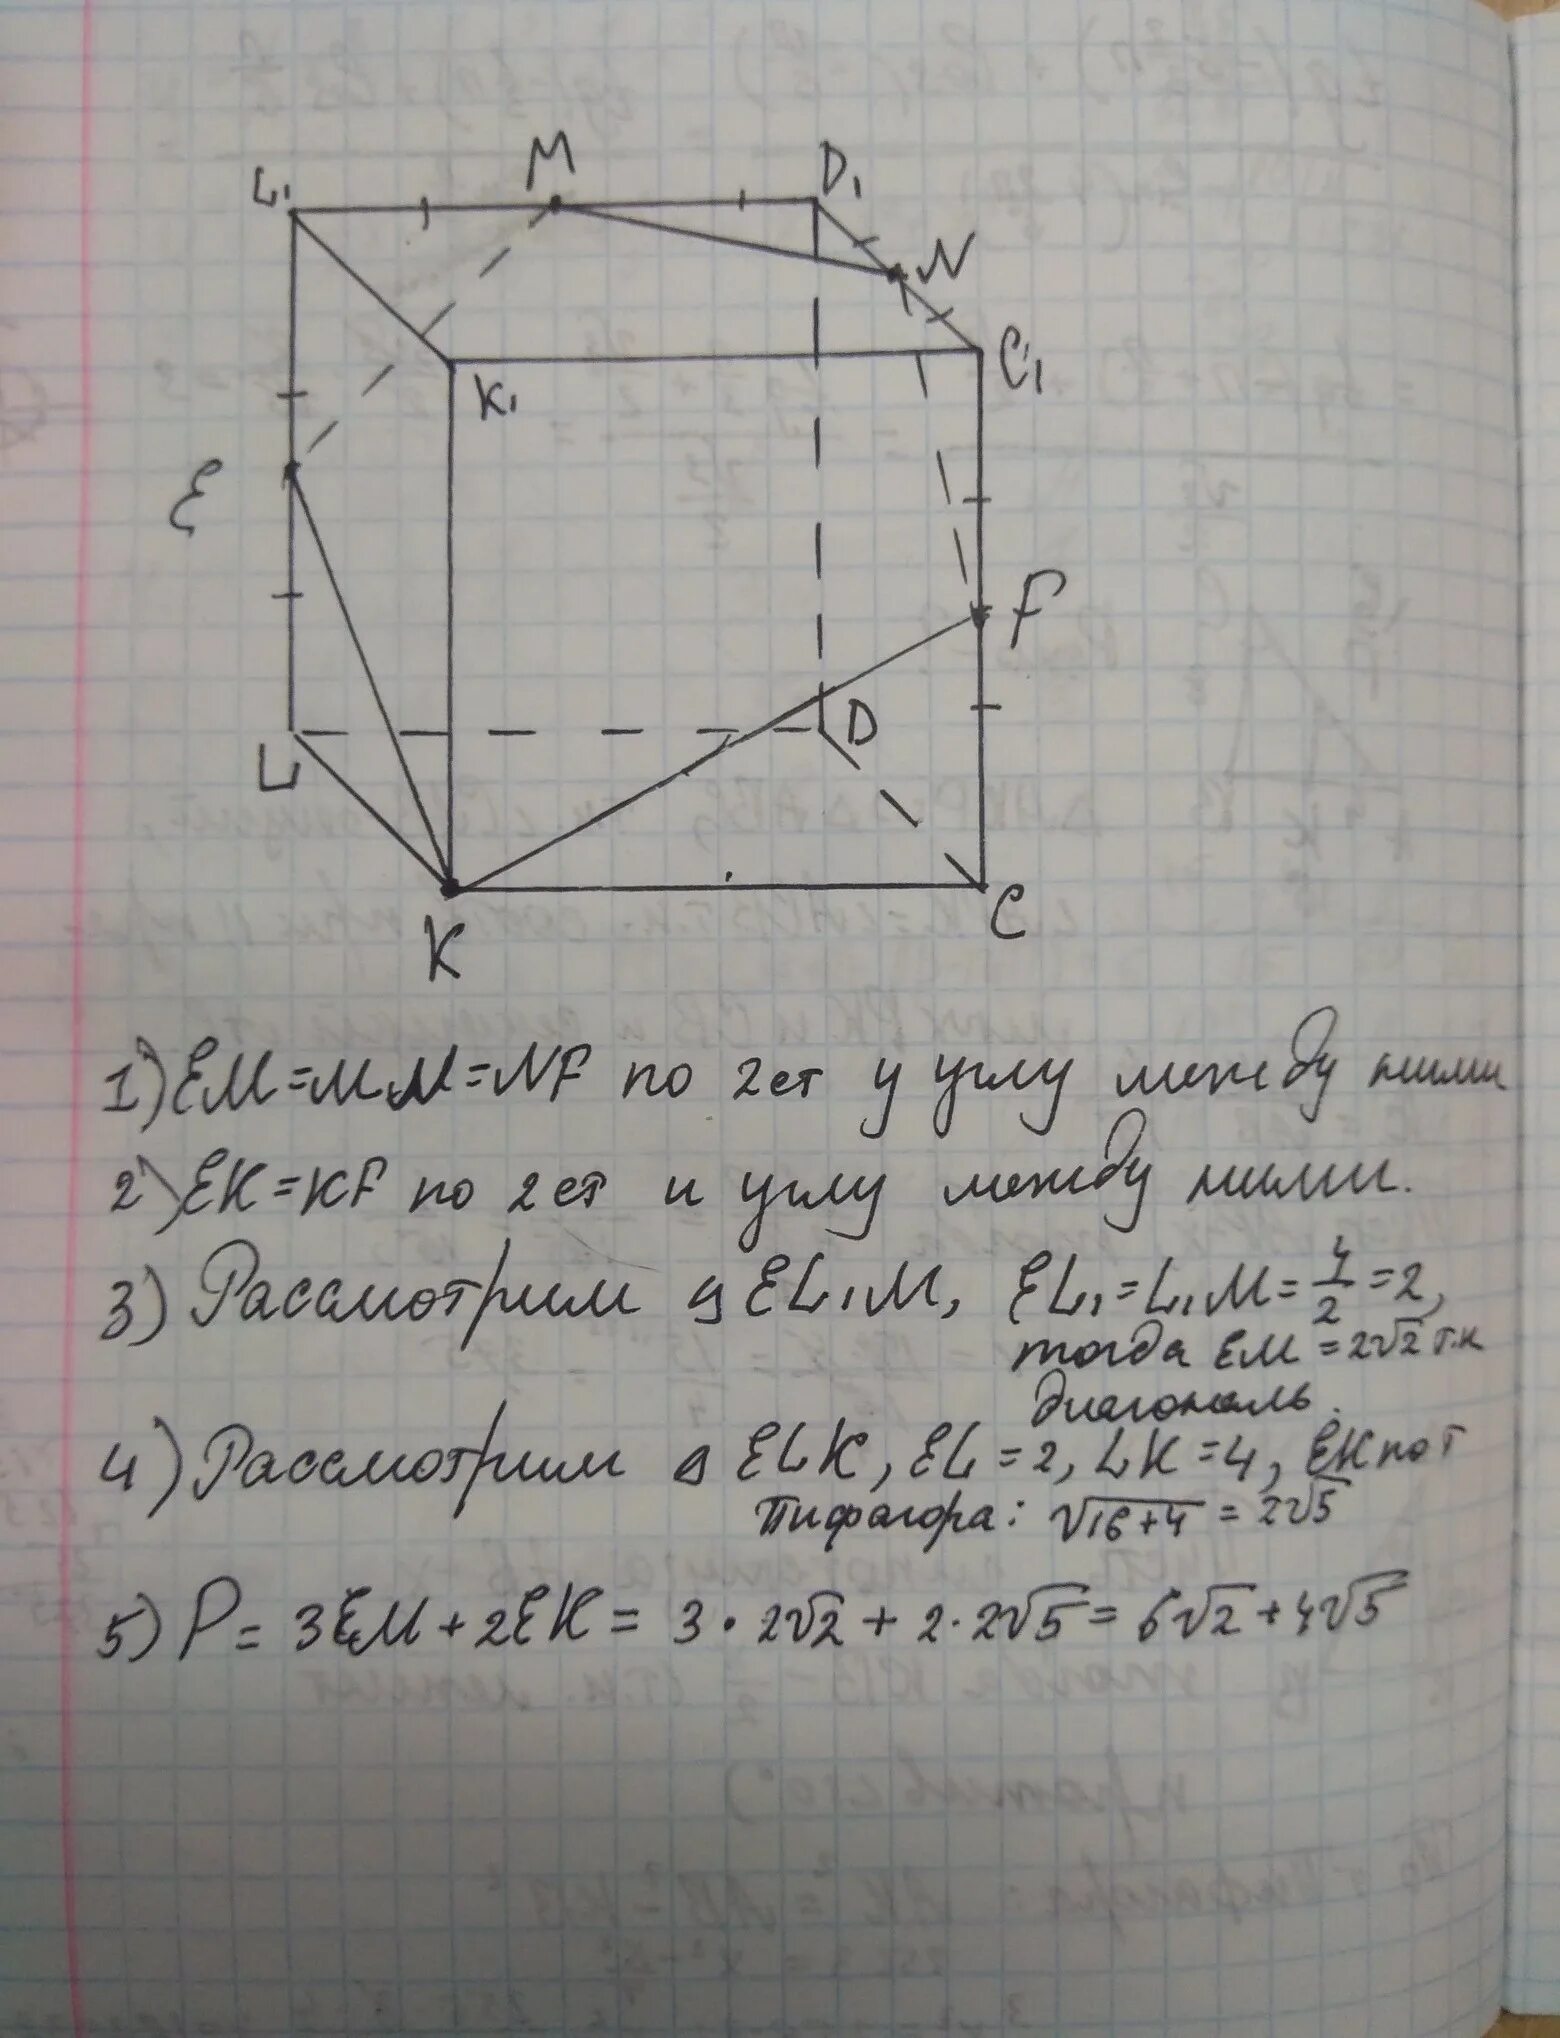 M
D₁
L₁
N
C₁
K₁
E
F
D
L
C
K
1) EM=MN=NF по 2ст у углу между ними
2) EK=KF по 2ст и углу между ними.
3) Рассмотрим △EL₁M, EL₁=L₁M=4/2=2,
тогда EM=2√2 т.к
диагональ.
4) Рассмотрим △ELK, EL=2, LK=4, EK по т
Пифагора: √16+4=2√5
5) P=3EM+2EK=3·2√2+2·2√5=6√2+4√5